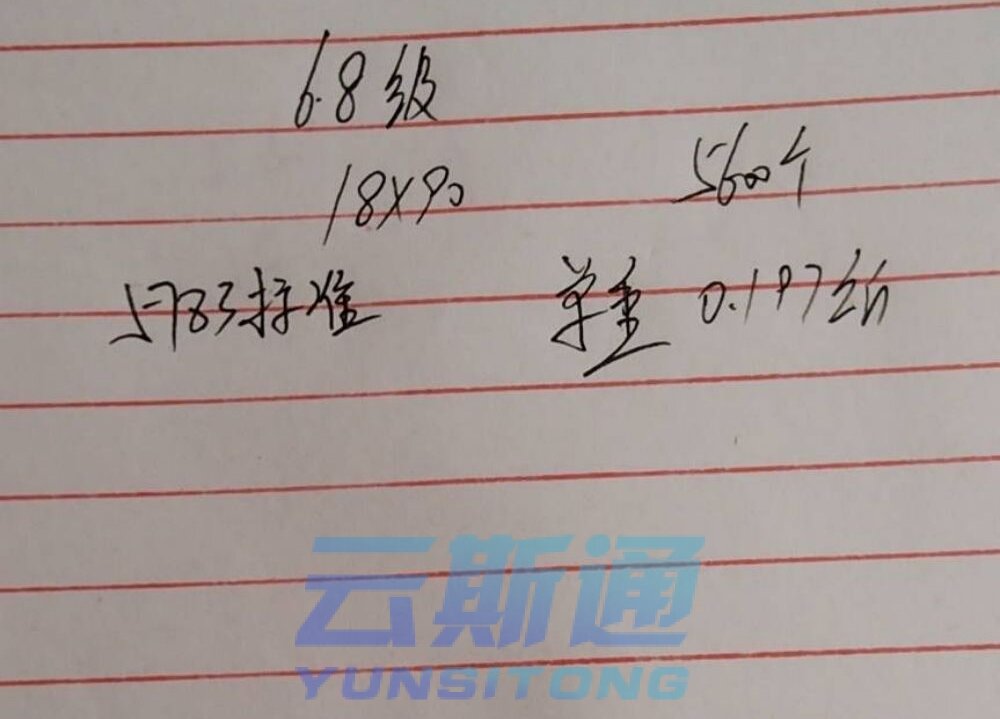 6.8级
18X90 5600个
5783标准 单重 0.197
云斯通
YUNSITONG